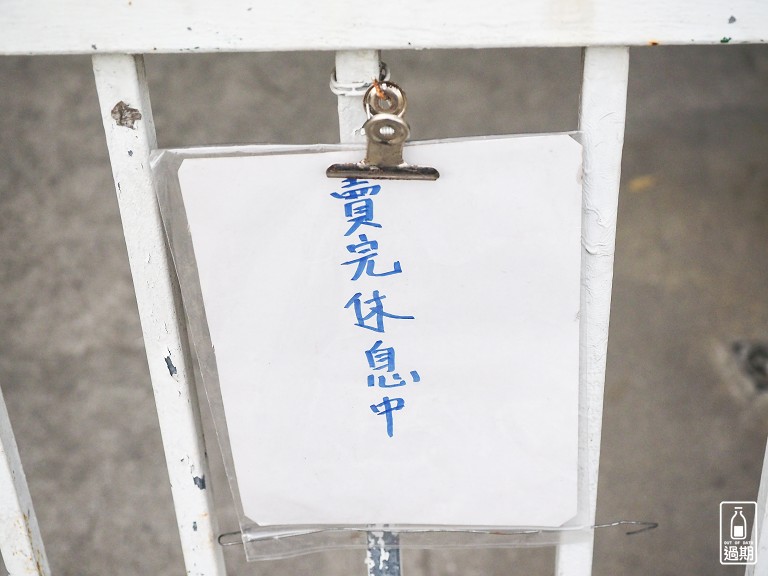 賣完休息中
OUT OF DATE
過期